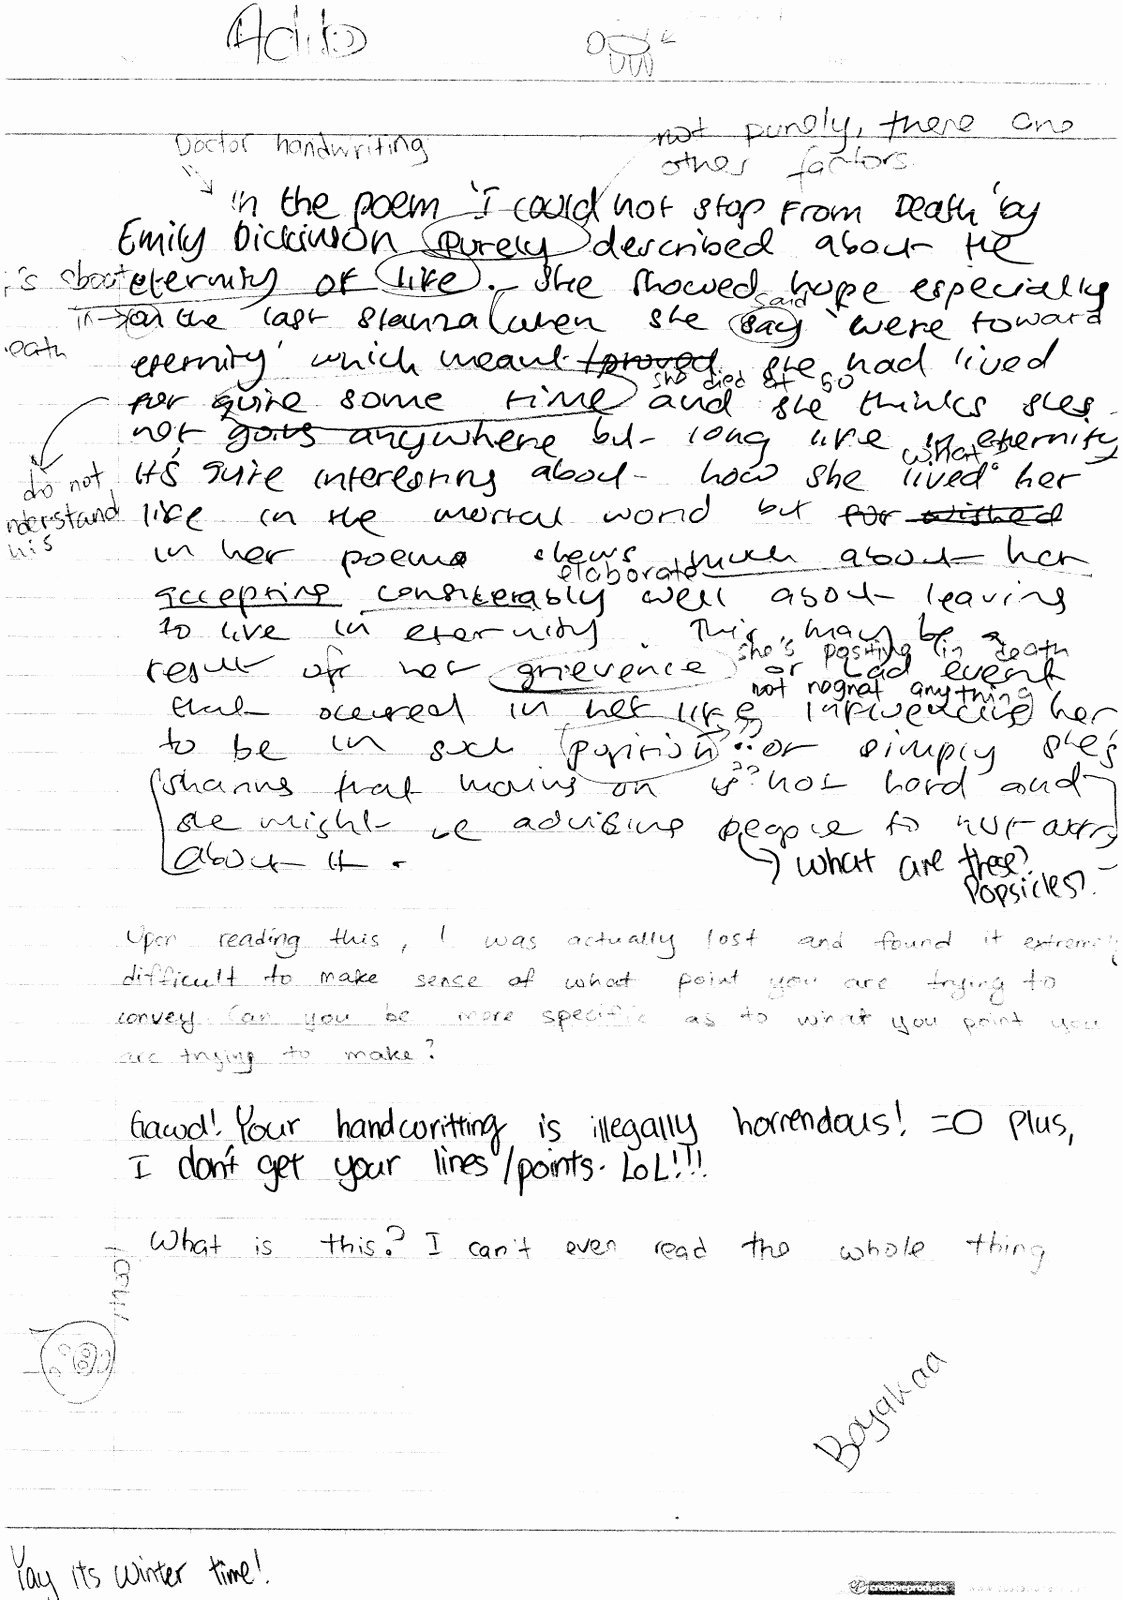 Adib
Doctor handwriting
not purely, there are
other factors.
in the poem 'I could not stop From Death' by
Emily Dickinson purely described about the
is about eternity of life. She showed hope especially
in on the last stanza when she say said 'were toward
eath
eternity' which meant proved she had lived
she died at 50
for quite some time and she thinks shes
not going anywhere but long live in eternity
what?
It's quite interesting about how she lived her
do not
nderstand
his
life in the mortal world but for wished
in her poems shows much about her
elaborate
accepting considerably well about leaving
to live in eternity. This may be a
she's positive in death
result of her grievence or bad event
not regret anything
that occured in her life influencing her
to be in such position ?? or simply she's
sharing that moving on is ?? not hard and
she might be advising people to not worry
about it.
what are these?
Popsicles?
Upon reading this, I was actually lost and found it extremely
difficult to make sense of what point you are trying to
convey. Can you be more specific as to what you point you
are trying to make?
Gawd! Your handwritting is illegally horrendous! =O Plus,
I don't get your lines/points. LoL!!!
What is this? I can't even read the whole thing
Boyakaa
Yay its winter time!
creativeproducts